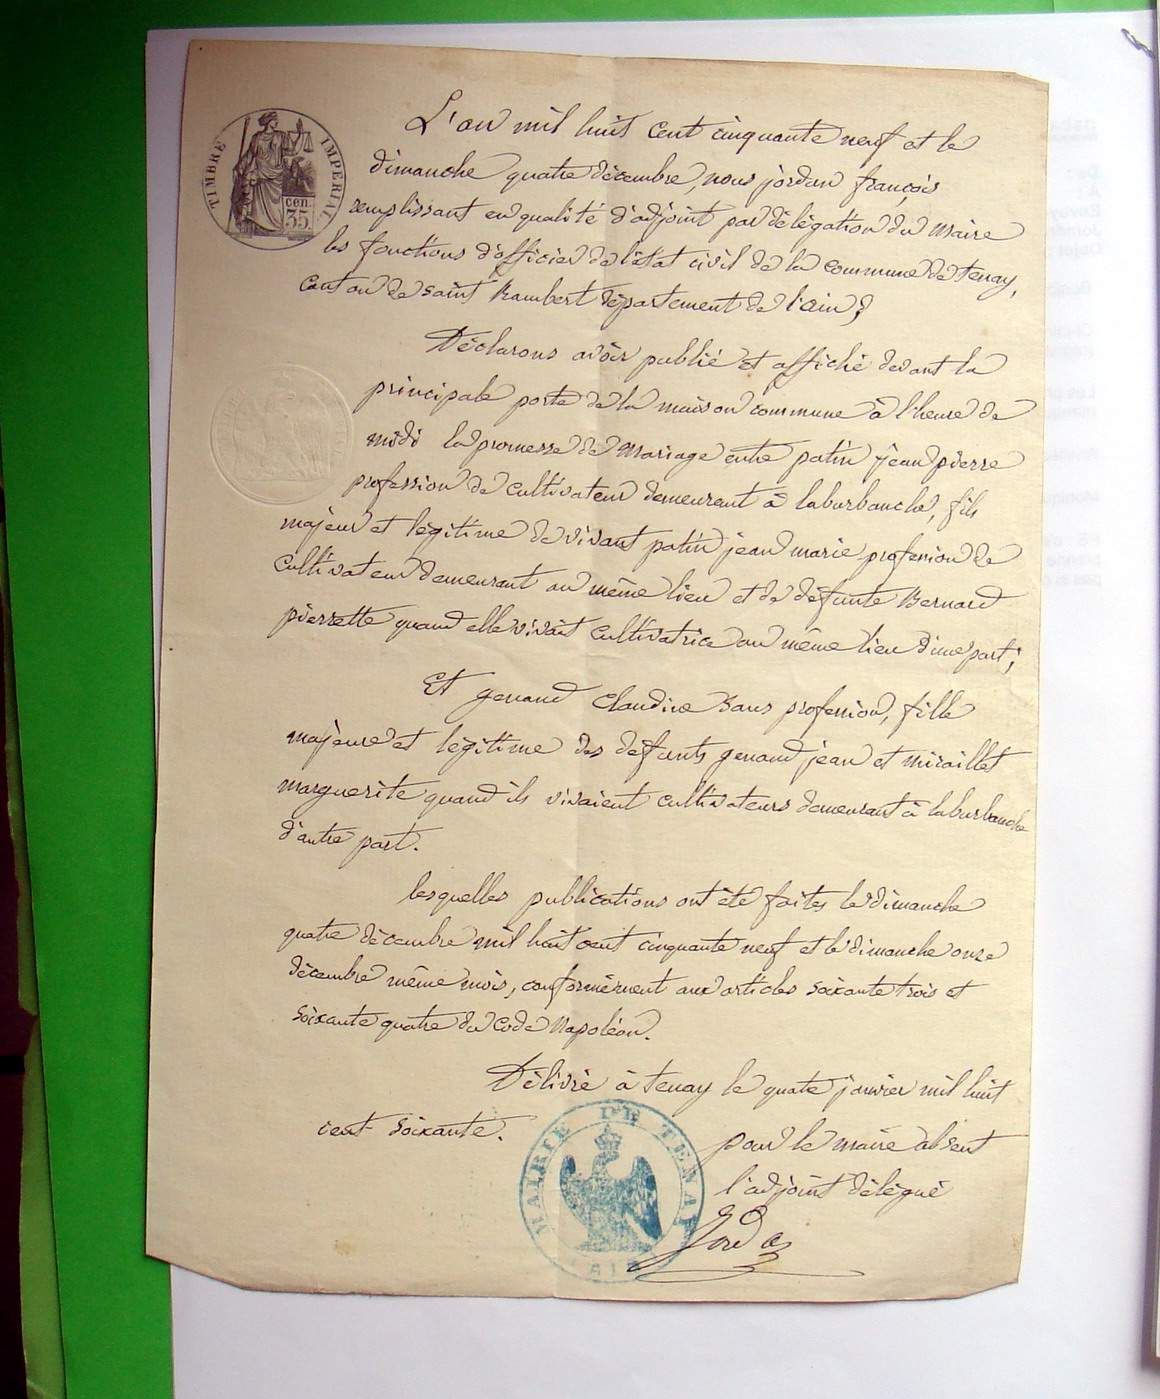 TIMBRE IMPERIAL
cen. 35.
L'an mil huit cent cinquante neuf et le
dimanche quatre décembre, nous jordan françois
remplissant en qualité d'adjoint par délégation du Maire
les fonctions d'officier de l'état civil de la commune de tenay,
Canton de saint Rambert département de l'ain;
Déclarons avoir publié et affiché devant la
principale porte de la maison commune à l'heure de
midi la promesse de Mariage entre patin jean pierre
profession de cultivateur demeurant à laburbanche, fils
majeur et légitime de vivant patin jean marie profession de
Cultivateur demeurant au même lieu et de défunte Bernard
pierrette quand elle vivait cultivatrice au même lieu d'une part;
Et genaud Claudine Sans profession, fille
majeure et légitime des défunts genaud jean et miraillet
marguerite quand ils vivaient cultivateurs demeurant à laburbanche
d'autre part.
lesquelles publications ont été faites le dimanche
quatre décembre mil huit cent cinquante neuf et le dimanche onze
décembre même mois, conformément aux articles soixante trois et
soixante quatre du Code Napoléon.
Délivré à tenay le quatre janvier mil huit
cent soixante.
pour le maire absent
l'adjoint délégué
Jordan
MAIRIE DE TENAY
(AIN)